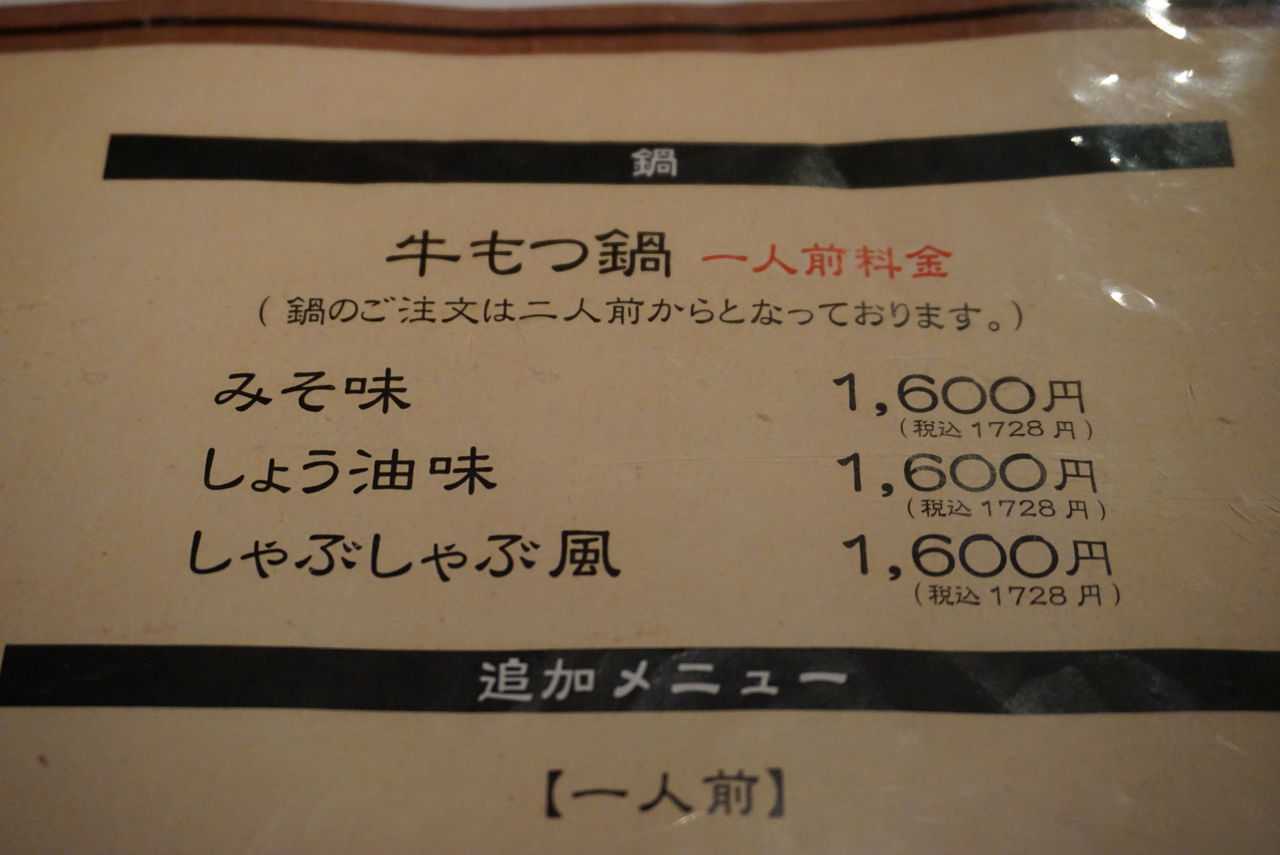 鍋
牛もつ鍋 一人前料金
(鍋のご注文は二人前からとなっております。)
みそ味 1,600円
(税込1728円)
しょう油味 1,600円
(税込1728円)
しゃぶしゃぶ風 1,600円
(税込1728円)
追加メニュー
【一人前】